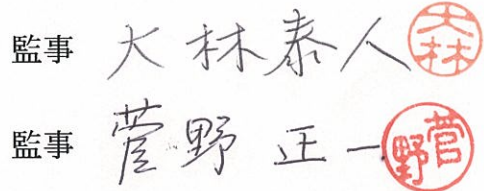 監事 大林泰人 大林
監事 菅野正一 菅野